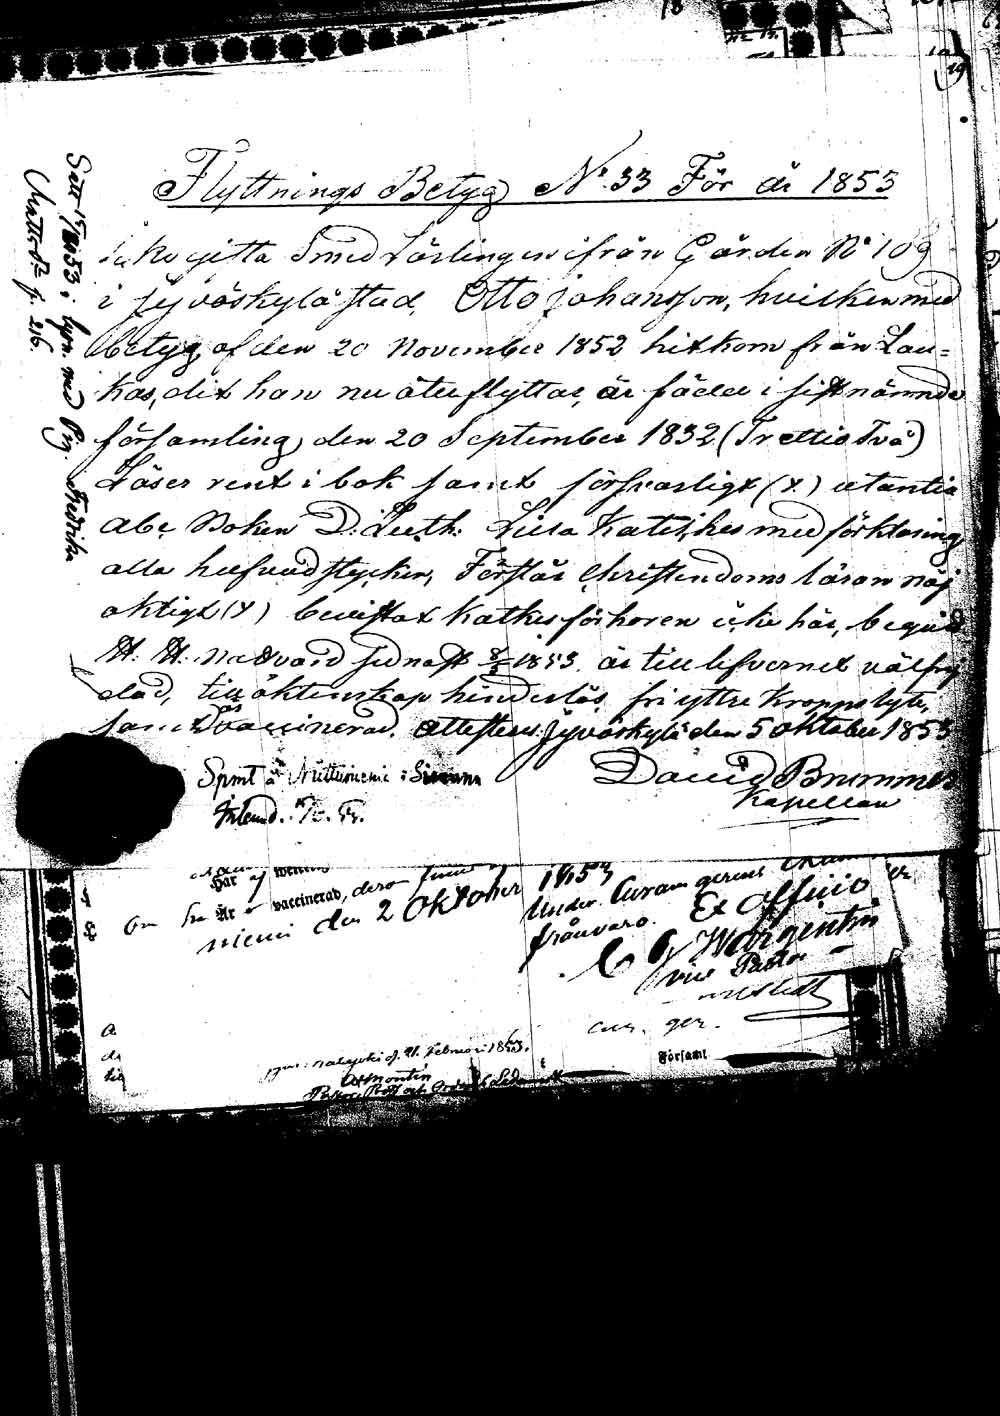 Flyttnings Betyg No 33 För år 1853
Smed Lärlingen ifrån Gården No 109
i Jyväskylä stad, Otto Johansson, hvilken med
betyg af den 20 November 1852 hitkom från Lau=
kas, dit han nu återflyttar, är född i sistnämnde
församling, den 20 September 1832 (Trettio Två)
Läser rent i bok samt försvarligt (x) utantill
abc Boken D: Luth: Lilla Kateches med förklaring
alla hufvudstycken, Förstår Christendoms läran nöj
aktigt (x) bevistat Katkesförhören icke här, begick
H. H. Nattvard sednast 1853, är till lefvernet välfrej
dad, till äktenskap hinderlös, fri yttre kroppslyte,
samt vaccinerad. Attesteras Jyväskylä den 5 Oktober 1853
David Brummer
Kapellan
Gift 1853; hyrn. med Pig. Fredrika
Mattsdr p. 216.
Spmt å
Här af
Är vaccinerad, dess
niemi den 2 Oktober 1853
Under Curam gerens
frånvaro. Ex officio
C G Wargentin
vice Pastor
cur. ger.
d. 21 Februari 1853.
Församl